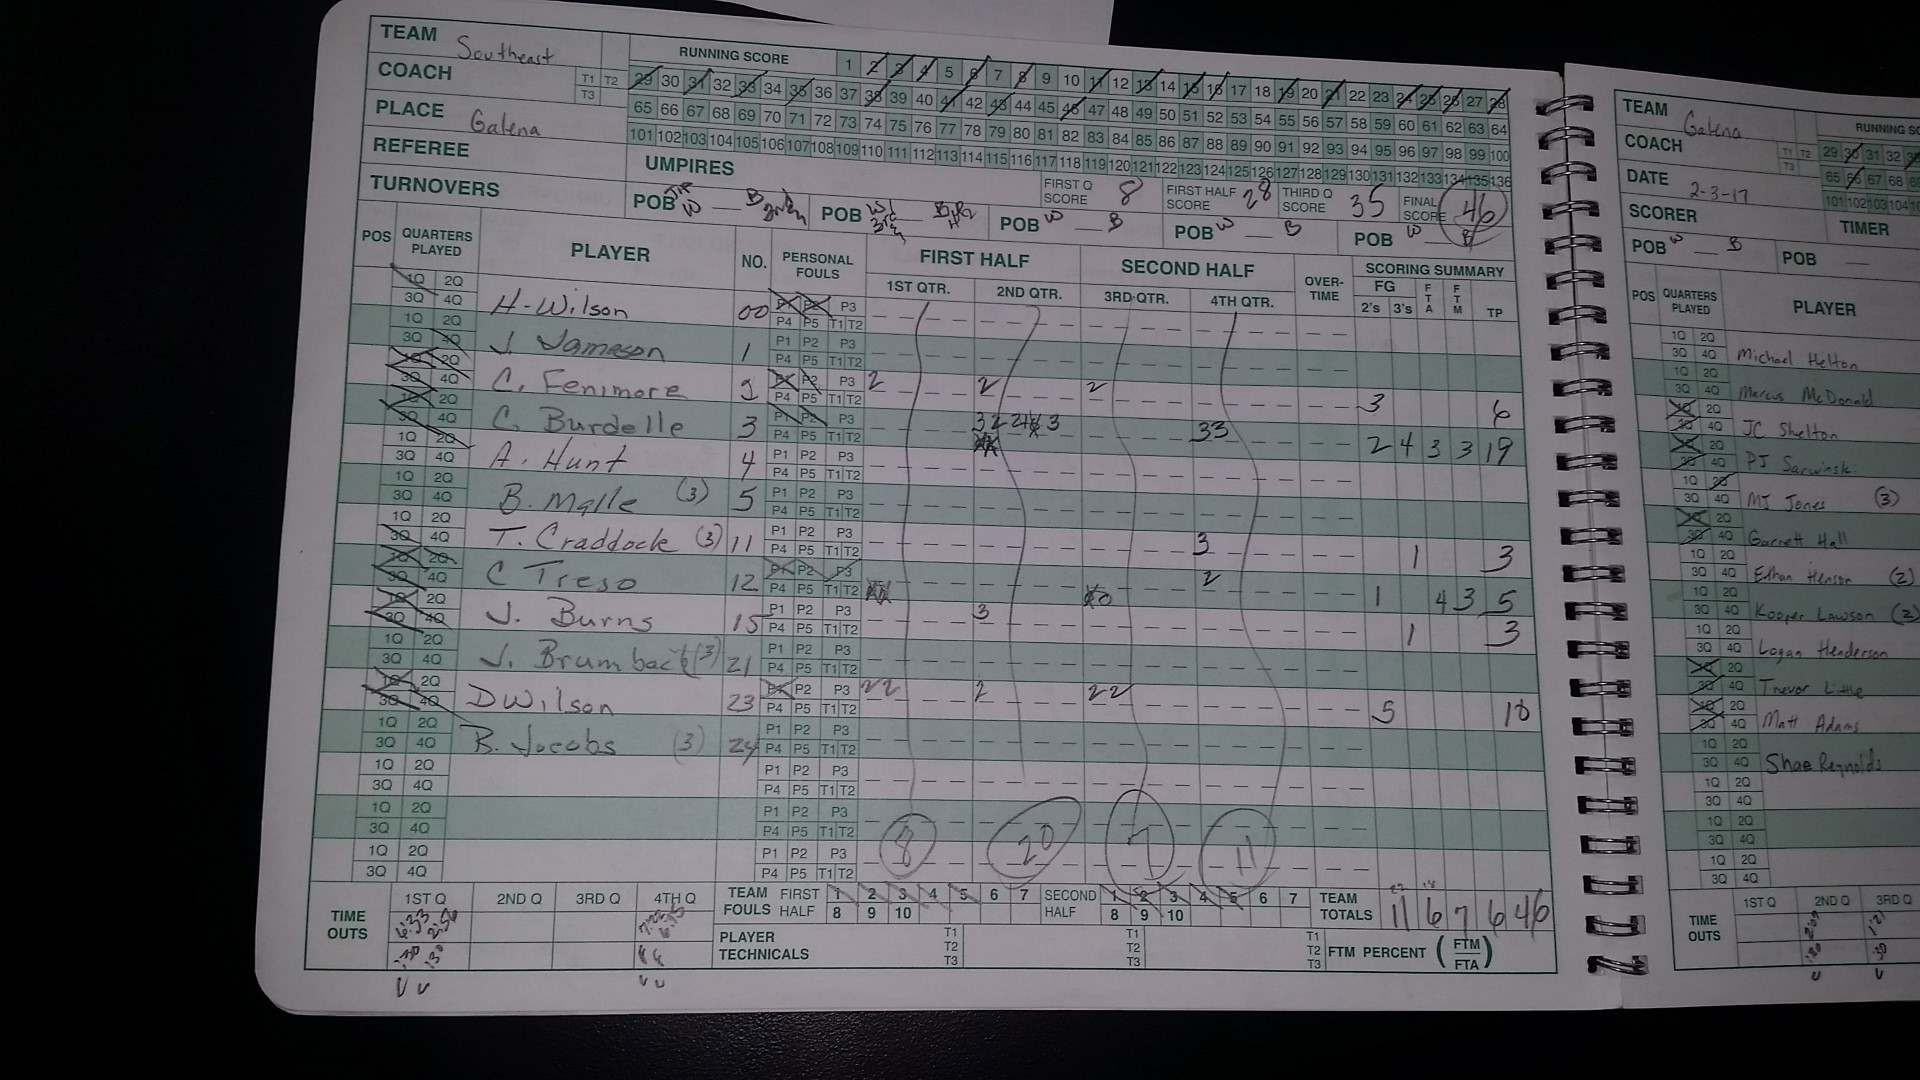 TEAM Southeast
RUNNING SCORE 1 2 3 4 5 6 7 8 9 10 11 12 13 14 15 16 17 18 19 20 21 22 23 24 25 26 27 28
COACH T1 T2 T3 29 30 31 32 33 34 35 36 37 38 39 40 41 42 43 44 45 46 47 48 49 50 51 52 53 54 55 56 57 58 59 60 61 62 63 64
PLACE Galena 65 66 67 68 69 70 71 72 73 74 75 76 77 78 79 80 81 82 83 84 85 86 87 88 89 90 91 92 93 94 95 96 97 98 99 100
101 102 103 104 105 106 107 108 109 110 111 112 113 114 115 116 117 118 119 120 121 122 123 124 125 126 127 128 129 130 131 132 133 134 135 136
REFEREE UMPIRES
FIRST Q SCORE 8 FIRST HALF SCORE 28 THIRD Q SCORE 35 FINAL SCORE 46
TURNOVERS POB W B POB W POB W B POB W B POB W B
POS QUARTERS PLAYED PLAYER NO. PERSONAL FOULS FIRST HALF SECOND HALF OVER-TIME SCORING SUMMARY
1ST QTR. 2ND QTR. 3RD QTR. 4TH QTR. FG 2's 3's FTA FTM TP
1Q 2Q 3Q 4Q H. Wilson 00 P1 P2 P3 P4 P5 T1 T2
1Q 2Q 3Q 4Q J. Jameson 1 P1 P2 P3 P4 P5 T1 T2
1Q 2Q 3Q 4Q C. Fenimore 2 P1 P2 P3 P4 P5 T1 T2 2 2 2 3 6
1Q 2Q 3Q 4Q C. Burdelle 3 P1 P2 P3 P4 P5 T1 T2 33 2 4 3 3 19
1Q 2Q 3Q 4Q A. Hunt 4 P1 P2 P3 P4 P5 T1 T2
1Q 2Q 3Q 4Q B. Malle (3) 5 P1 P2 P3 P4 P5 T1 T2
1Q 2Q 3Q 4Q T. Craddock (3) 11 P1 P2 P3 P4 P5 T1 T2 3 1 3
1Q 2Q 3Q 4Q C Treso 12 P1 P2 P3 P4 P5 T1 T2 2 1 4 3 5
1Q 2Q 3Q 4Q J. Burns 15 P1 P2 P3 P4 P5 T1 T2 3 1 3
1Q 2Q 3Q 4Q J. Brumback (3) 21 P1 P2 P3 P4 P5 T1 T2
1Q 2Q 3Q 4Q D Wilson 23 P1 P2 P3 P4 P5 T1 T2 22 2 22 5 10
1Q 2Q 3Q 4Q B. Jacobs (3) 24 P1 P2 P3 P4 P5 T1 T2
1Q 2Q 3Q 4Q P1 P2 P3 P4 P5 T1 T2
1Q 2Q 3Q 4Q P1 P2 P3 P4 P5 T1 T2
1Q 2Q 3Q 4Q P1 P2 P3 P4 P5 T1 T2
8 20 7 11
TIME OUTS 1ST Q 2ND Q 3RD Q 4TH Q
TEAM FOULS FIRST HALF 1 2 3 4 5 6 7 8 9 10 SECOND HALF 1 2 3 4 5 6 7 8 9 10 TEAM TOTALS 11 6 7 6 46
PLAYER TECHNICALS T1 T2 T3 T1 T2 T3 T1 T2 T3 FTM PERCENT (FTM FTA)
TEAM Galena
RUNNING SC
COACH T1 T2 T3 29 30 31 32
DATE 2-3-17 65 66 67 68
101 102 103 104
SCORER TIMER
POB W B POB
POS QUARTERS PLAYED PLAYER
1Q 2Q 3Q 4Q Michael Helton
1Q 2Q 3Q 4Q Marcus McDonald
1Q 2Q 3Q 4Q JC Shelton
1Q 2Q 3Q 4Q PJ Sarwinski
1Q 2Q 3Q 4Q MJ Jones (3)
1Q 2Q 3Q 4Q Garrett Hall
1Q 2Q 3Q 4Q Ethan Henson (2)
1Q 2Q 3Q 4Q Kooper Lawson (2)
1Q 2Q 3Q 4Q Logan Henderson
1Q 2Q 3Q 4Q Trevor Little
1Q 2Q 3Q 4Q Matt Adams
1Q 2Q 3Q 4Q Shae Reynolds
1Q 2Q 3Q 4Q
1Q 2Q 3Q 4Q
1Q 2Q 3Q 4Q
TIME OUTS 1ST Q 2ND Q 3RD Q